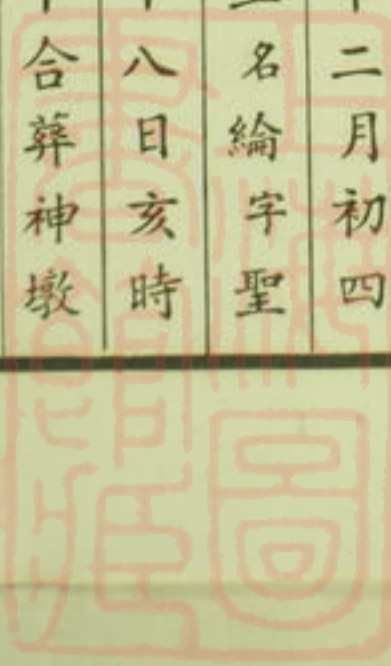 二月初四
名綸字聖
八日亥時
合葬神墩